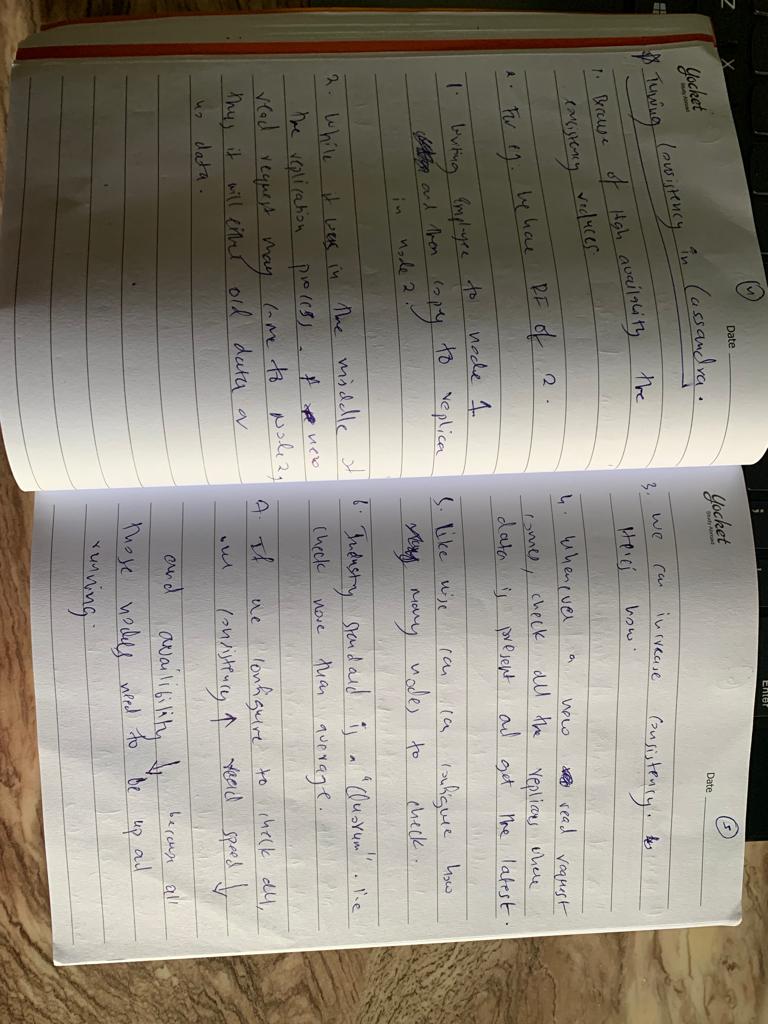 Enter
Z X ;
4
Date
yocket
Study Abroad
Tuning Consistency in Cassandra.
1. Because of High availability the
consistency reduces.
2. For eg. we have RF of 2.
1. Writing Employee to node 1
and then copy to replica
in node 2.
2. While it was in the middle of
the replication process. A new
read request may come to Node 2,
thus it will either old data or
no data.
5
Date
yocket
Study Abroad
3. We can increase consistency.
Here's how.
4. Whenever a new read request
comes, check all the replicas where
data is present ad get the latest.
5. Like wise can can configure how
many nodes to check.
6. Industry standard is a "Quorum". i.e
check more than average.
7. If we configure to check all,
our consistency ↑ read speed ↓
and availibility ↓ because all
those nodes need to be up ad
running.